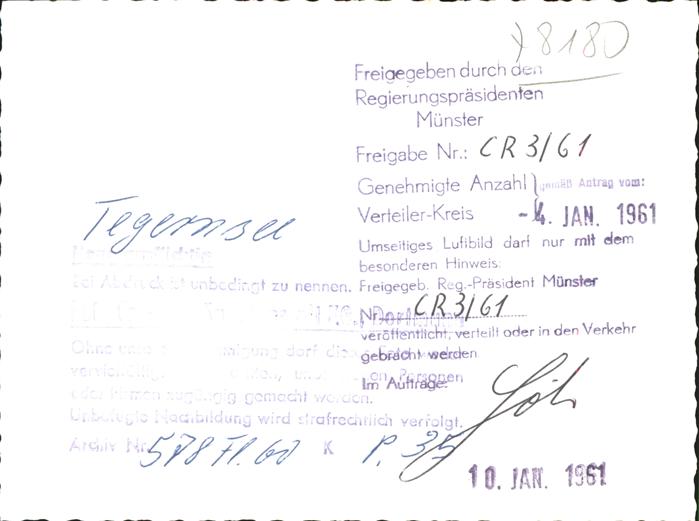 8180
Freigegeben durch den
Regierungspräsidenten
Münster
Freigabe Nr.: CR 3/61
Genehmigte Anzahl } gemäß Antrag vom:
Verteiler-Kreis -4. JAN. 1961
Umseitiges Luftbild darf nur mit dem
besonderen Hinweis:
Freigegeb. Reg.-Präsident Münster
Nr. CR 3/61
veröffentlicht, verteilt oder in den Verkehr
gebracht werden
Im Auftrage:
10. JAN. 1961
Tegernsee
Bei Abdruck ist unbedingt zu nennen.
Ohne
oder Firmen zugängig gemacht werden.
Unbefugte Nachbildung wird strafrechtlich verfolgt.
Archiv Nr. 578 Fl. 60 K P. 35